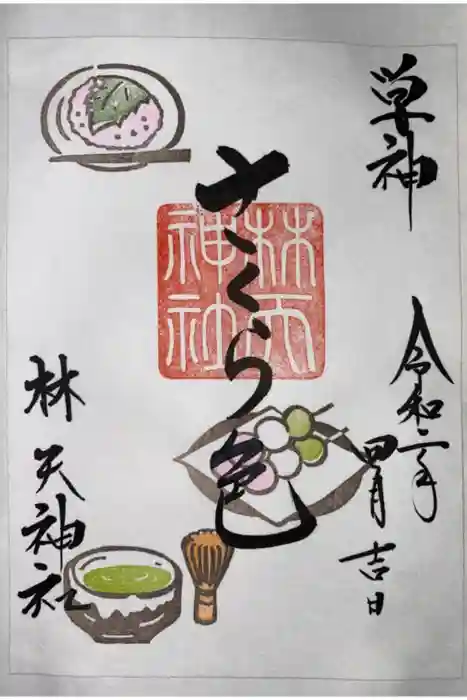 神
令和二年
四月吉日
さくら色
林天
神社
林天神社